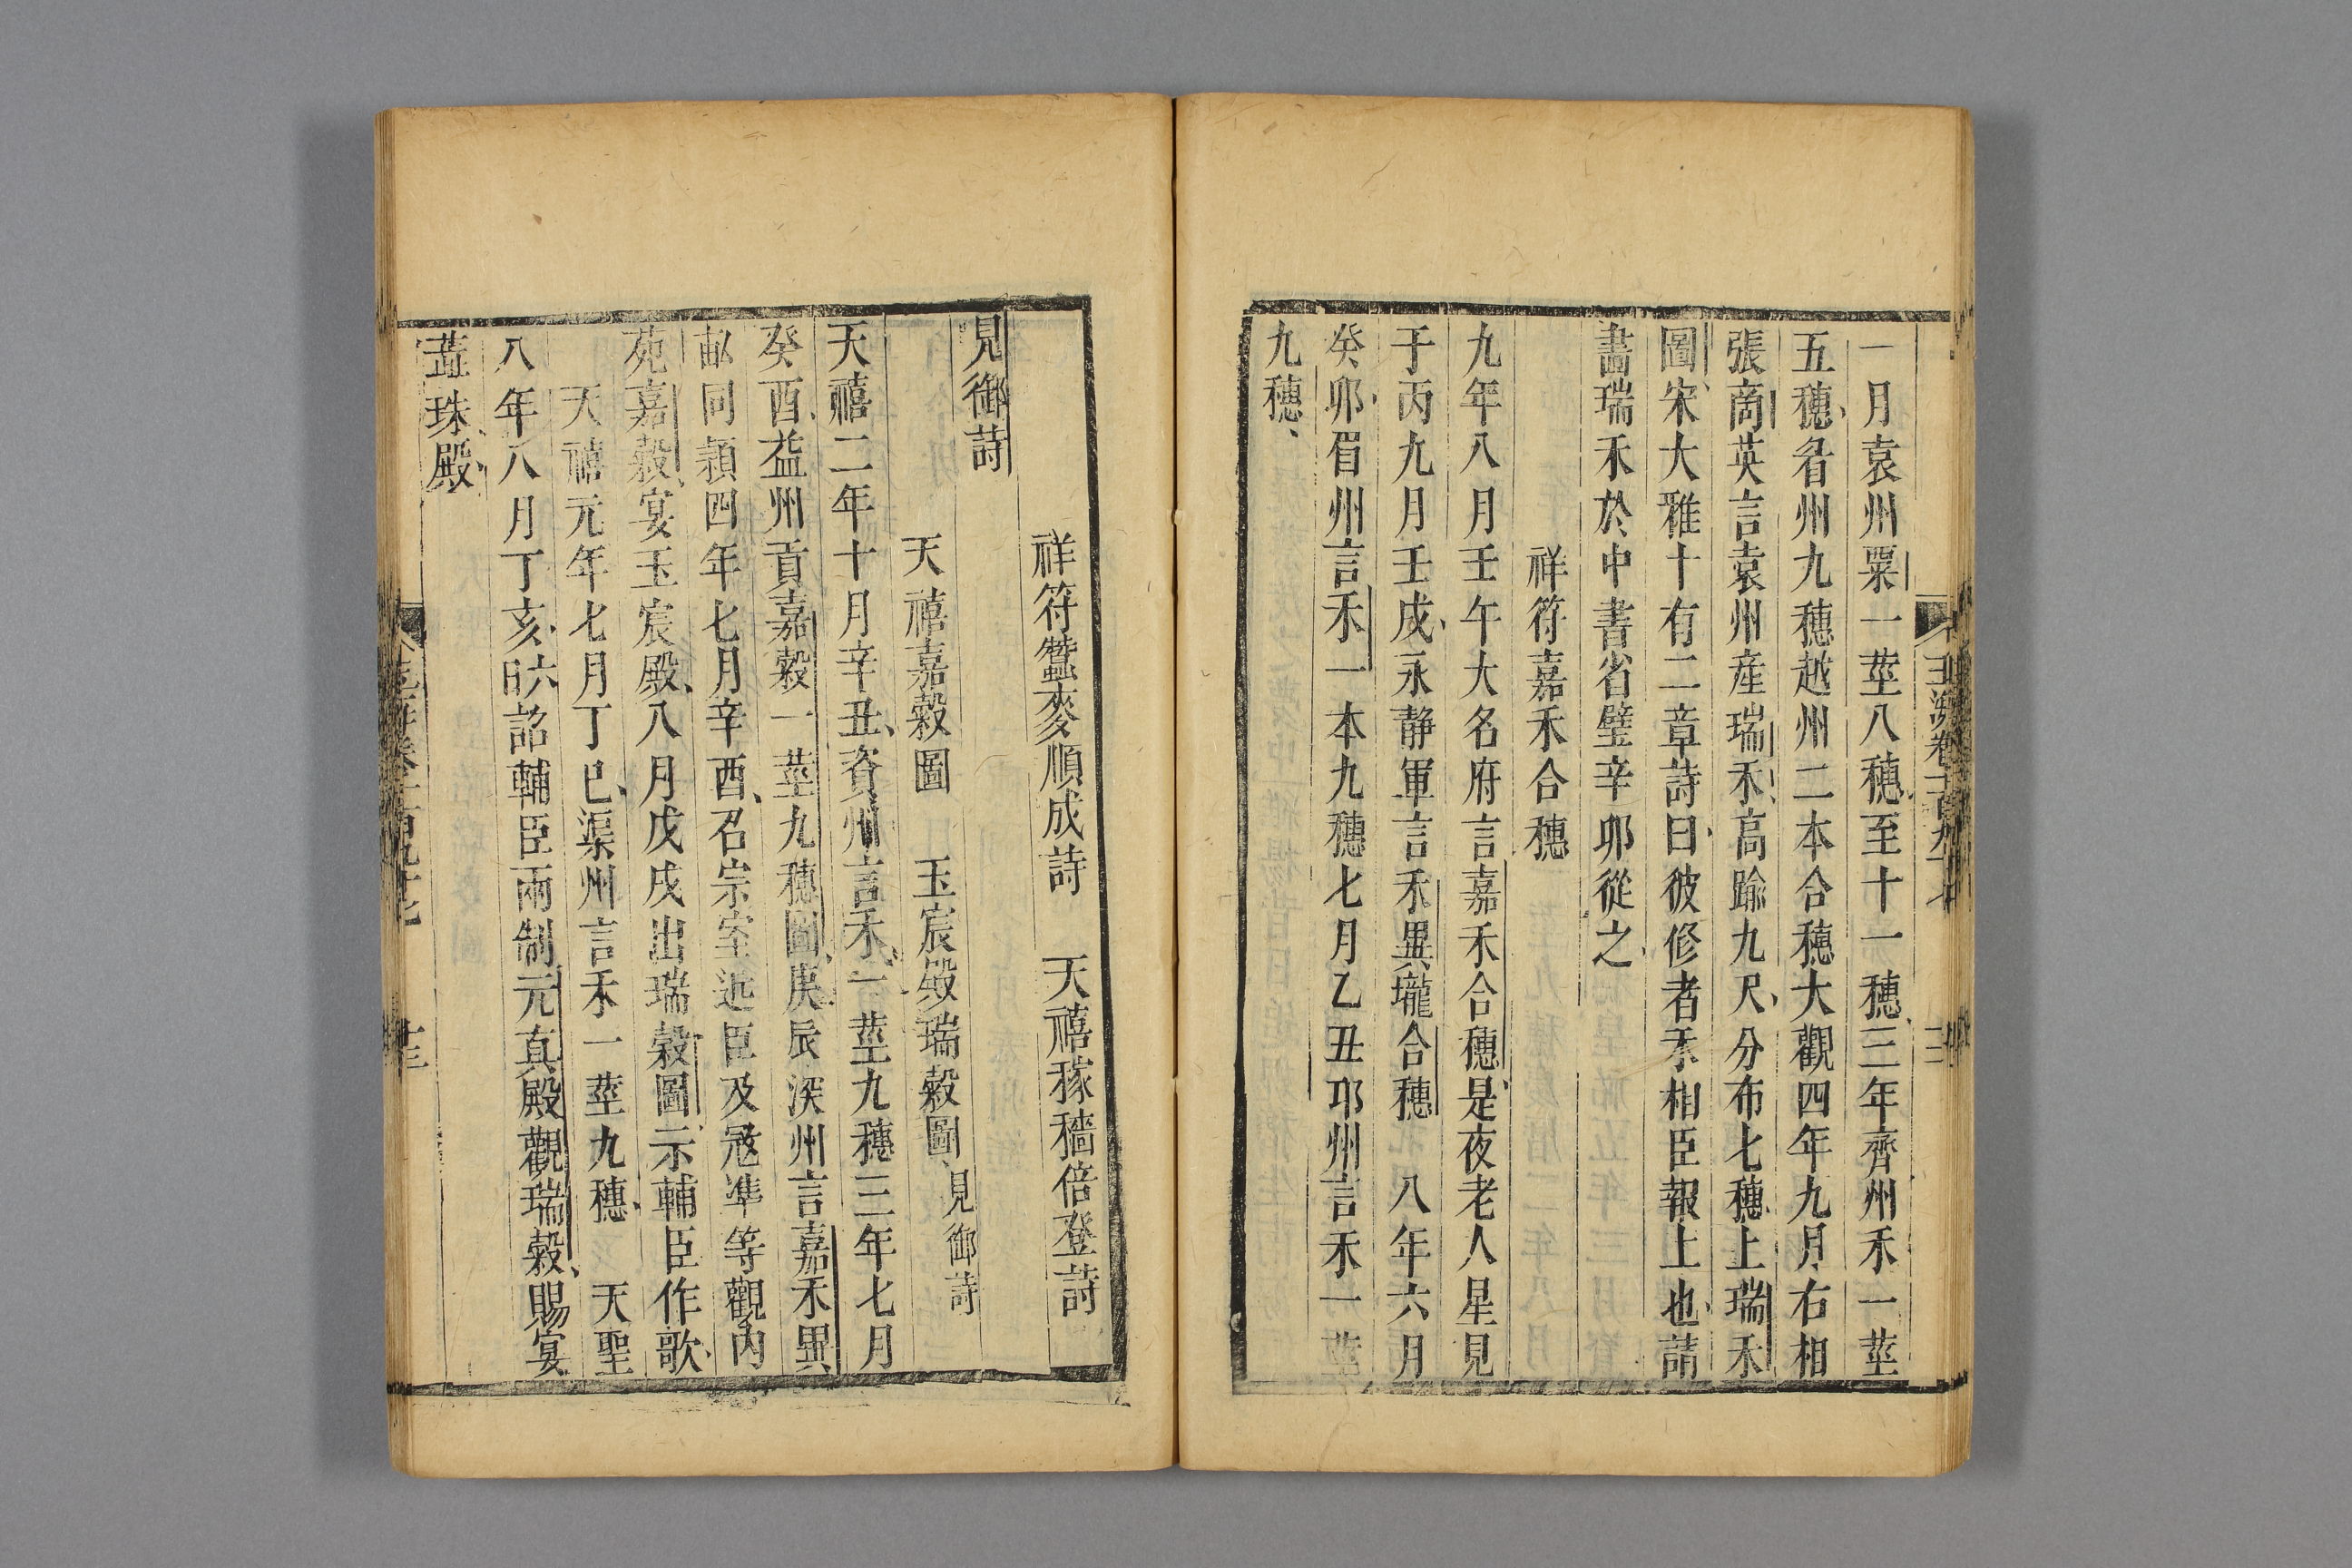 一月袁州粟一莖八穗至十一穗三年齊州禾一莖
五穗眉州九穗越州二本合穗大觀四年九月右相
張商英言袁州產瑞禾高踰九尺分布七穗上瑞禾
圖宋大雅十有二章詩曰彼修者禾相臣報上也請
畵瑞禾於中書省壁辛卯從之
祥符嘉禾合穗
九年八月壬午大名府言嘉禾合穗是夜老人星見
于丙九月壬戌永靜軍言禾異壠合穗　八年六月
癸卯眉州言禾一本九穗七月乙丑邛州言禾一莖
九穗
祥符蠶麥順成詩　天禧稼穡倍登詩
見御詩
天禧嘉穀圖　玉宸殿瑞穀圖見御詩
天禧二年十月辛丑資州言禾一莖九穗三年七月
癸酉益州貢嘉穀一莖九穗圖庚辰深州言嘉禾異
畝同穎四年七月辛酉召宗室近臣及寇準等觀內
苑嘉穀宴玉宸殿八月戊戌出瑞穀圖示輔臣作歌
天禧元年七月丁巳渠州言禾一莖九穗　天聖
八年八月丁亥詔輔臣兩制元真殿觀瑞穀賜宴
蘂珠殿